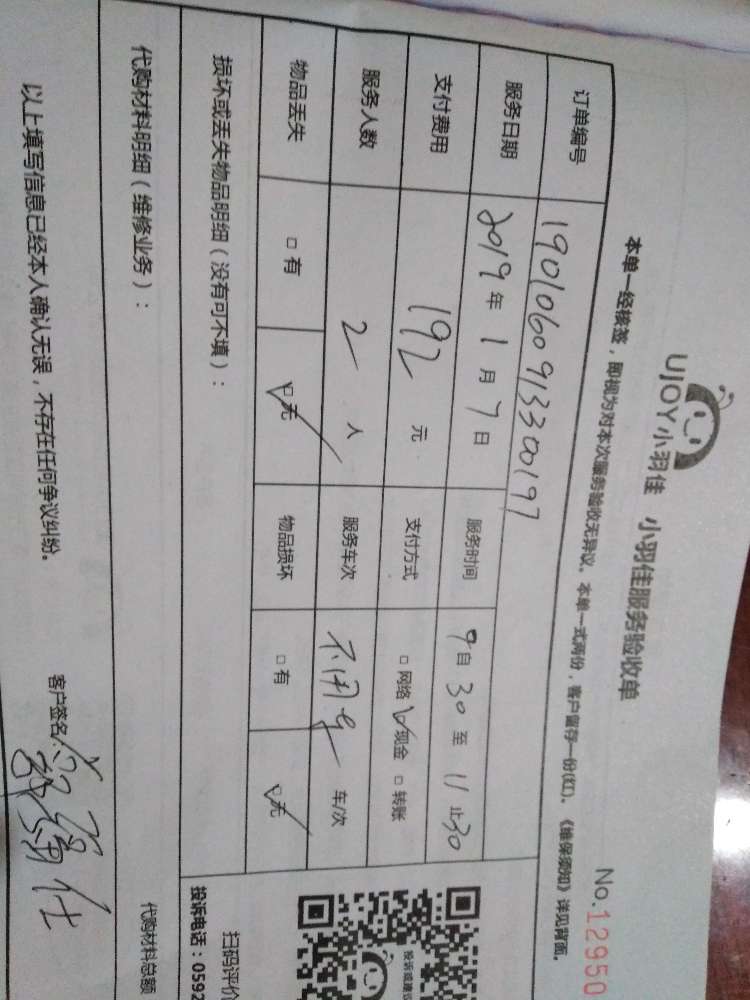 UJOY小羽佳 小羽佳服务验收单
No.12950
本单一经核签，即视为对本次服务验收无异议。本单一式两份，客户留存一份(红)。《维保须知》详见背面。
订单编号 1901060913300197
服务日期 2019年1月7日 服务时间 9自30至11止30
支付费用 192元 支付方式 □网络 ☑现金 □转账
服务人数 2人 服务车次 不用车 车/次
物品丢失 □有 ☑无 物品损坏 □有 ☑无
损坏或丢失物品明细（没有可不填）：
扫码评价
投诉电话：0592
代购材料明细（维修业务）： 代购材料总额
以上填写信息已经本人确认无误，不存在任何争议纠纷。 客户签名：